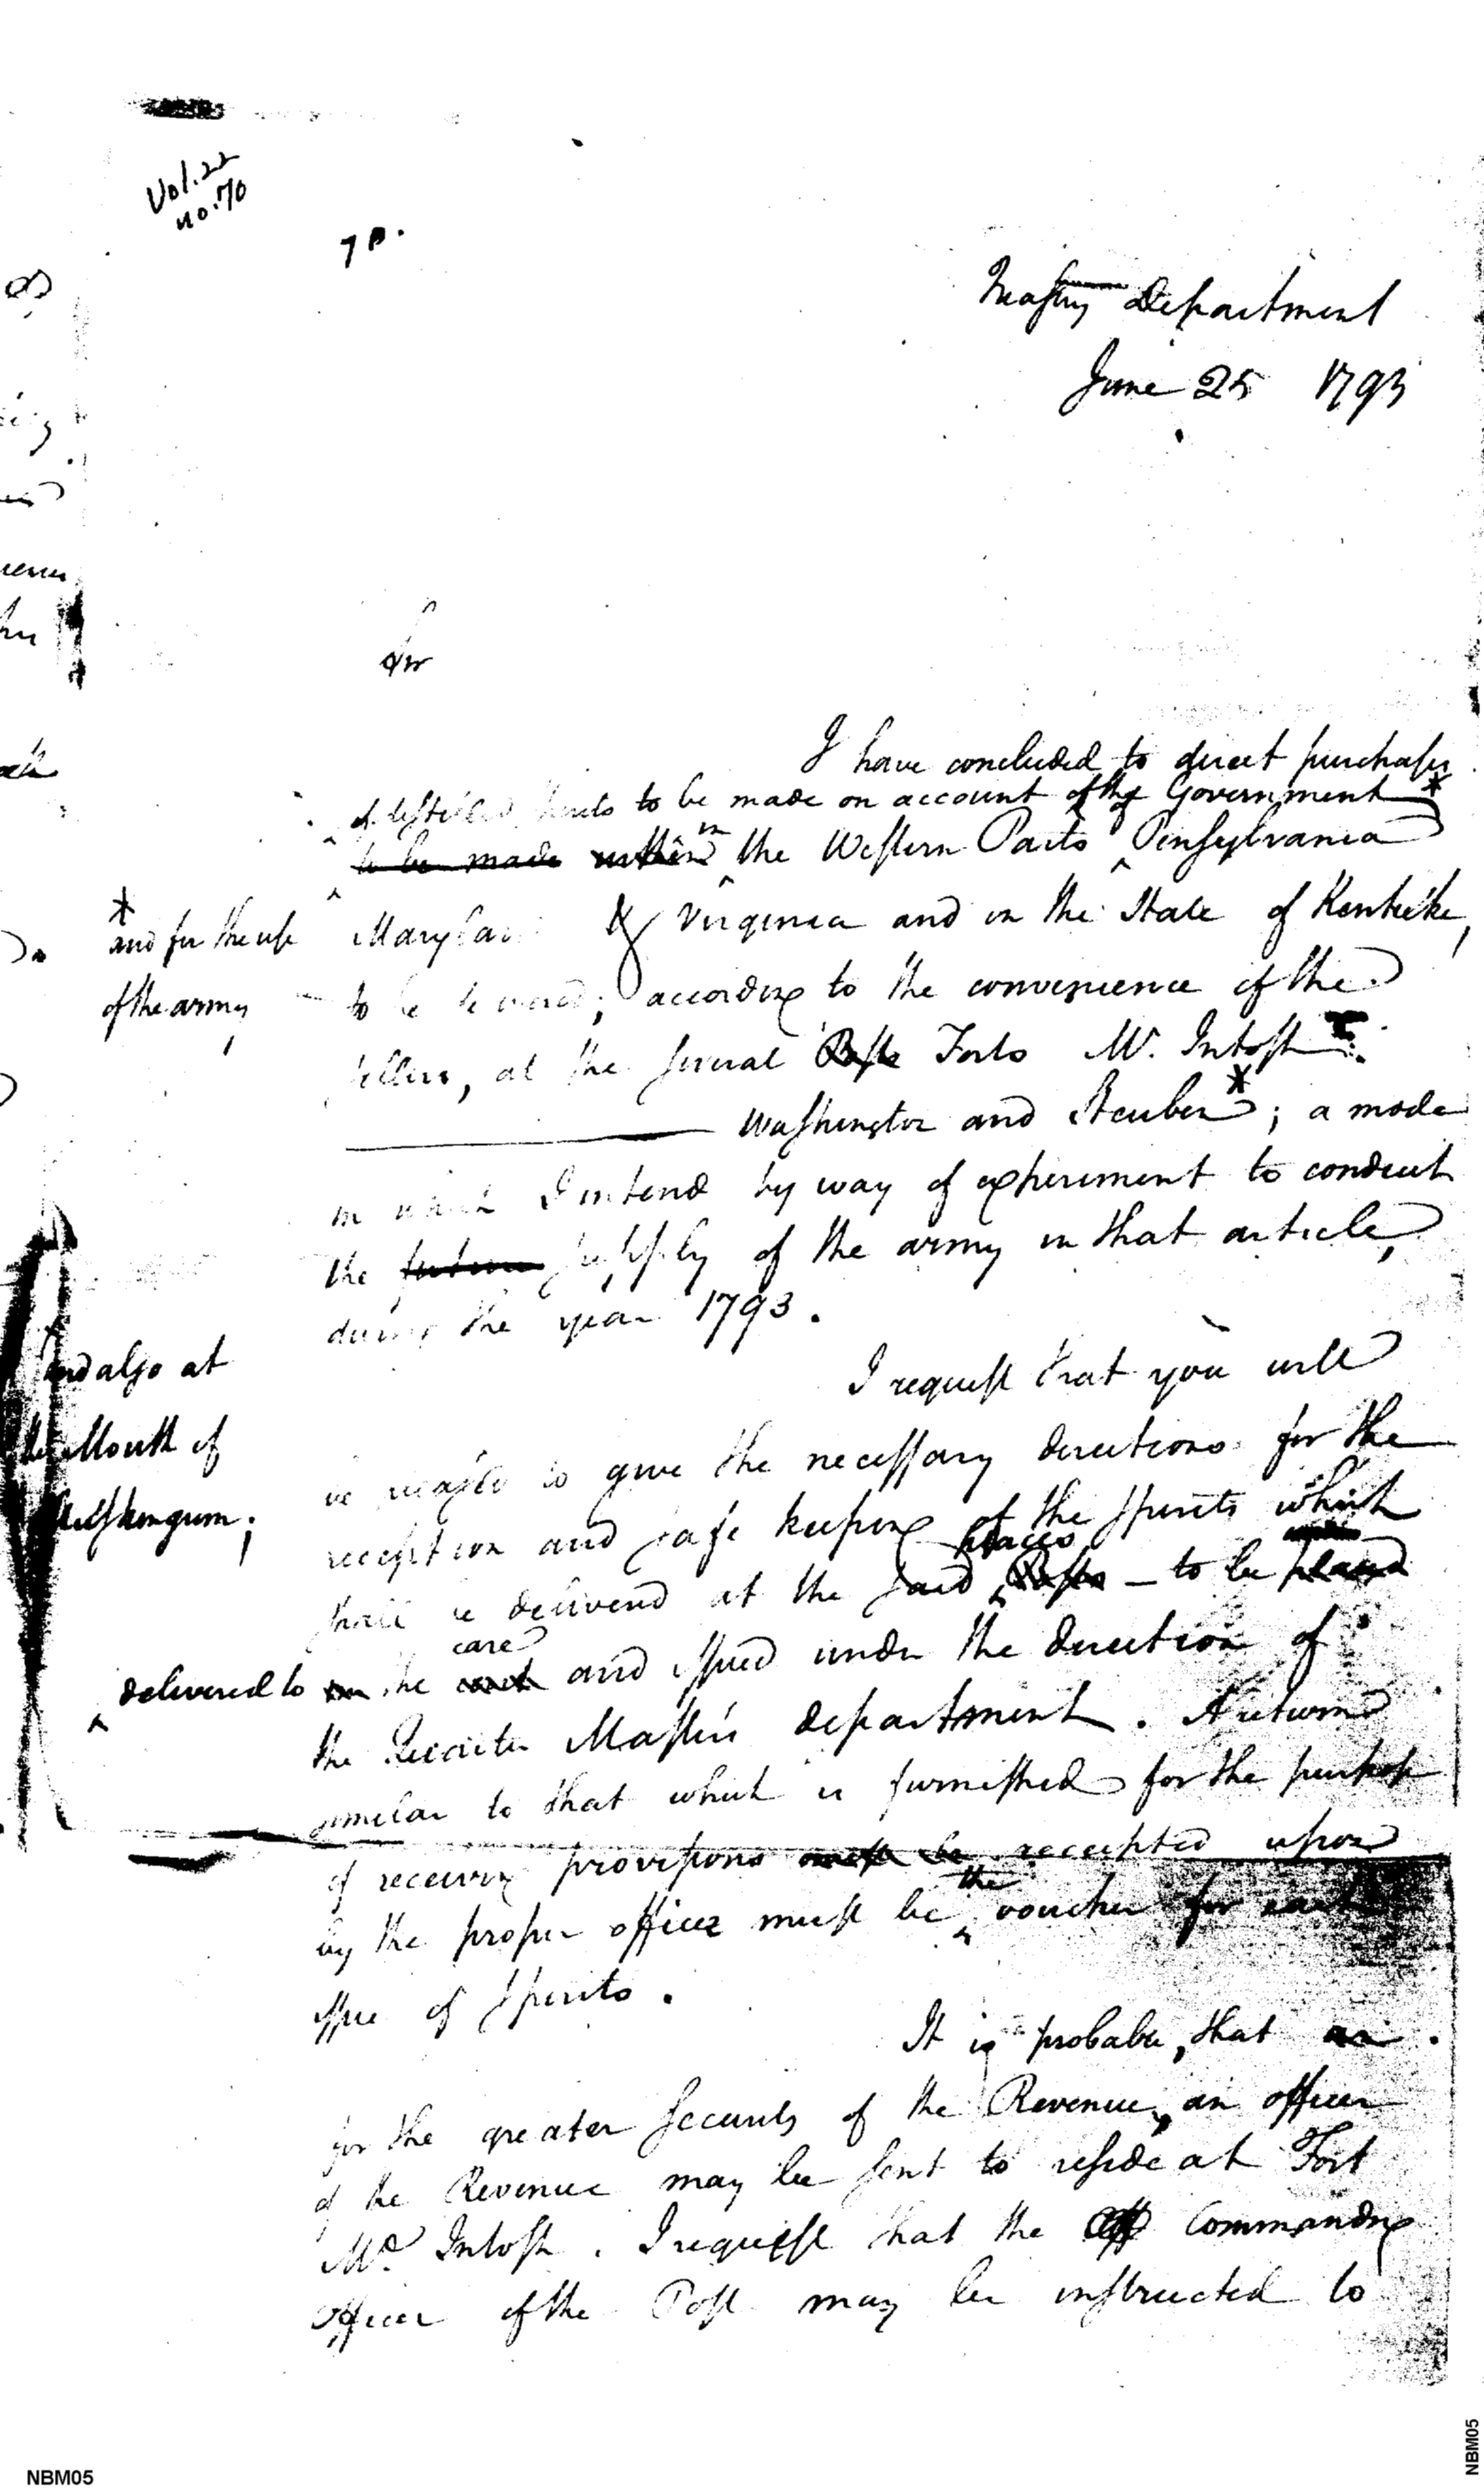 Vol. 22
no. 70
7 p.
Treasury Department
June 25 1793
Sir
I have concluded to direct purchases
of distilled spirits to be made on account of the Government *
to be made within in the Western Parts Pensylvania
Maryland & Virginia and in the State of Kentucke,
* and for the use
of the army
to be delivered, according to the convenience of the
sellers, at the several Posts Forts Mc. Intosh
Washington and Steuben *; a mode
in which I intend by way of experiment to conduct
the future supply of the army in that article,
during the year 1793.
and also at
the Mouth of
Muskingum;
I request that you will
be pleased to give the necessary directions for the
reception and safe keeping of the spirits which
shall be delivered at the said places Posts - to be placed
delivered to in the care and issued under the direction of
the Quarter Master's department. A return
similar to that which is furnished for the purpose
of receiving provisions must be receipted upon
by the proper officer must be the voucher for each
issue of spirits.
It is probable, that an
for the greater security of the Revenue, an officer
of the Revenue may be sent to reside at Fort
Mc. Intosh. I request that the Off Commanding
officer of the Post may be instructed to
NBM05
NBM05